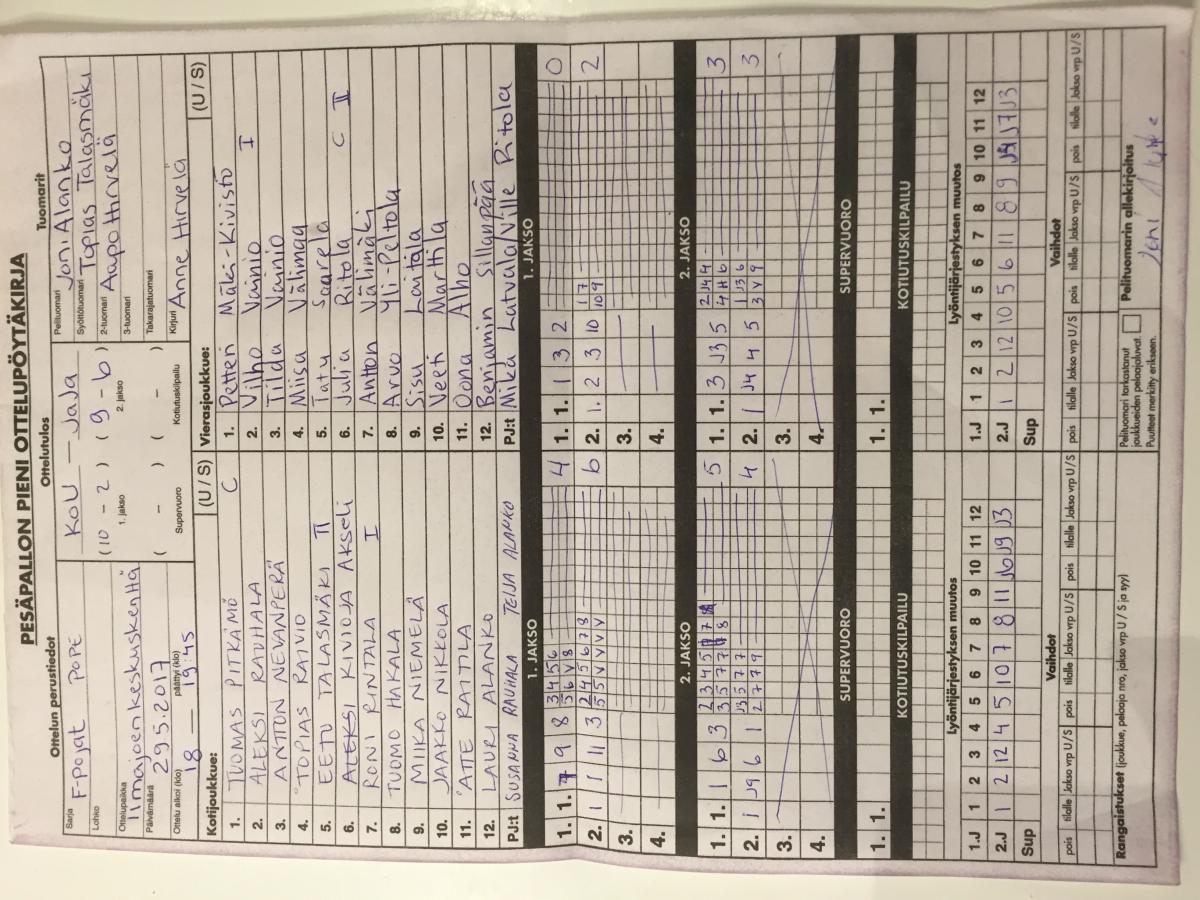 PESÄPALLON PIENI OTTELUPÖYTÄKIRJA
Ottelun perustiedot
Sarja F-Pojat POPE
Lohko
Ottelupaikka Ilmajoen keskuskenttä
Päivämäärä 29.5.2017
Ottelu alkoi (klo) päättyi (klo)
18 — 19:45
Ottelutulos
KoU — JaJa
(10 – 2) (9 – 6)
1. jakso 2. jakso
( – ) ( – )
Supervuoro Kotiutuskilpailu
Tuomarit
Pelituomari Joni Alanko
Syöttötuomari Topias Talasmäki
2-tuomari Aapo Hirvelä
3-tuomari
Takarajatuomari
Kirjuri Anne Hirvelä
Kotijoukkue: (U / S)
1. TUOMAS PITKÄMÖ C
2. ALEKSI RAUHALA
3. ANTTON NEVANPERÄ
4. TOPIAS RAIVIO
5. EETU TALASMÄKI II
6. ALEKSI KIVIOJA Akseli
7. RONI RINTALA I
8. TUOMO HAKALA
9. MIIKA NIEMELÄ
10. JAAKKO NIKKOLA
11. ATTE RATTILA
12. LAURI ALANKO
PJ:t SUSANNA RAUHALA TEIJA ALANKO
Vierasjoukkue: (U / S)
1. Petteri Mäki-Kivistö
2. Vilho Vainio I
3. Tilda Vainio
4. Miisa Välimaa
5. Tatu Saarela
6. Julia Ritola C II
7. Anton Välimäki
8. Arvo Yli-Peltola
9. Sisu Laitala
10. Veeti Marttila
11. Oona Alho
12. Benjamin Sillanpää
PJ:t Mika Latvala/Ville Ritola
1. JAKSO 1. JAKSO
1. 1. 9 8 4
2. 1 1 11 3 6
3.
4.
1. 1. 1 3 2 0
2. 1. 2 3 10 2
3.
4.
2. JAKSO 2. JAKSO
1. 1. 1 6 3 5
2. 1 J9 6 1 4
3.
4.
1. 1. 3 J3 5 3
2. 1 J4 4 5 3
3.
4.
SUPERVUORO SUPERVUORO
1. 1.
1. 1.
KOTIUTUSKILPAILU KOTIUTUSKILPAILU
Lyöntijärjestyksen muutos
1.J 1 2 3 4 5 6 7 8 9 10 11 12
2.J 1 2 12 4 5 10 7 8 11 J6 J9 J3
Sup
Lyöntijärjestyksen muutos
1.J 1 2 3 4 5 6 7 8 9 10 11 12
2.J 1 2 12 10 5 6 11 8 9 J4 J7 J3
Sup
Vaihdot
pois tilalle Jakso vrp U / S pois tilalle Jakso vrp U / S pois tilalle Jakso vrp U / S
Vaihdot
pois tilalle Jakso vrp U / S pois tilalle Jakso vrp U / S pois tilalle Jakso vrp U / S
Rangaistukset (joukkue, pelaaja nro, jakso vrp U / S ja syy)
Pelituomari tarkastanut
joukkueiden pelaajaluvat.
Puutteet merkitty erikseen.
Pelituomarin allekirjoitus